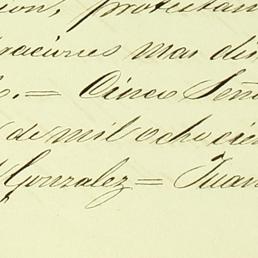 cion, protestan
raciones mas dis
s. = Cinco Seño
de mil ochocien
Gonzalez = Juan